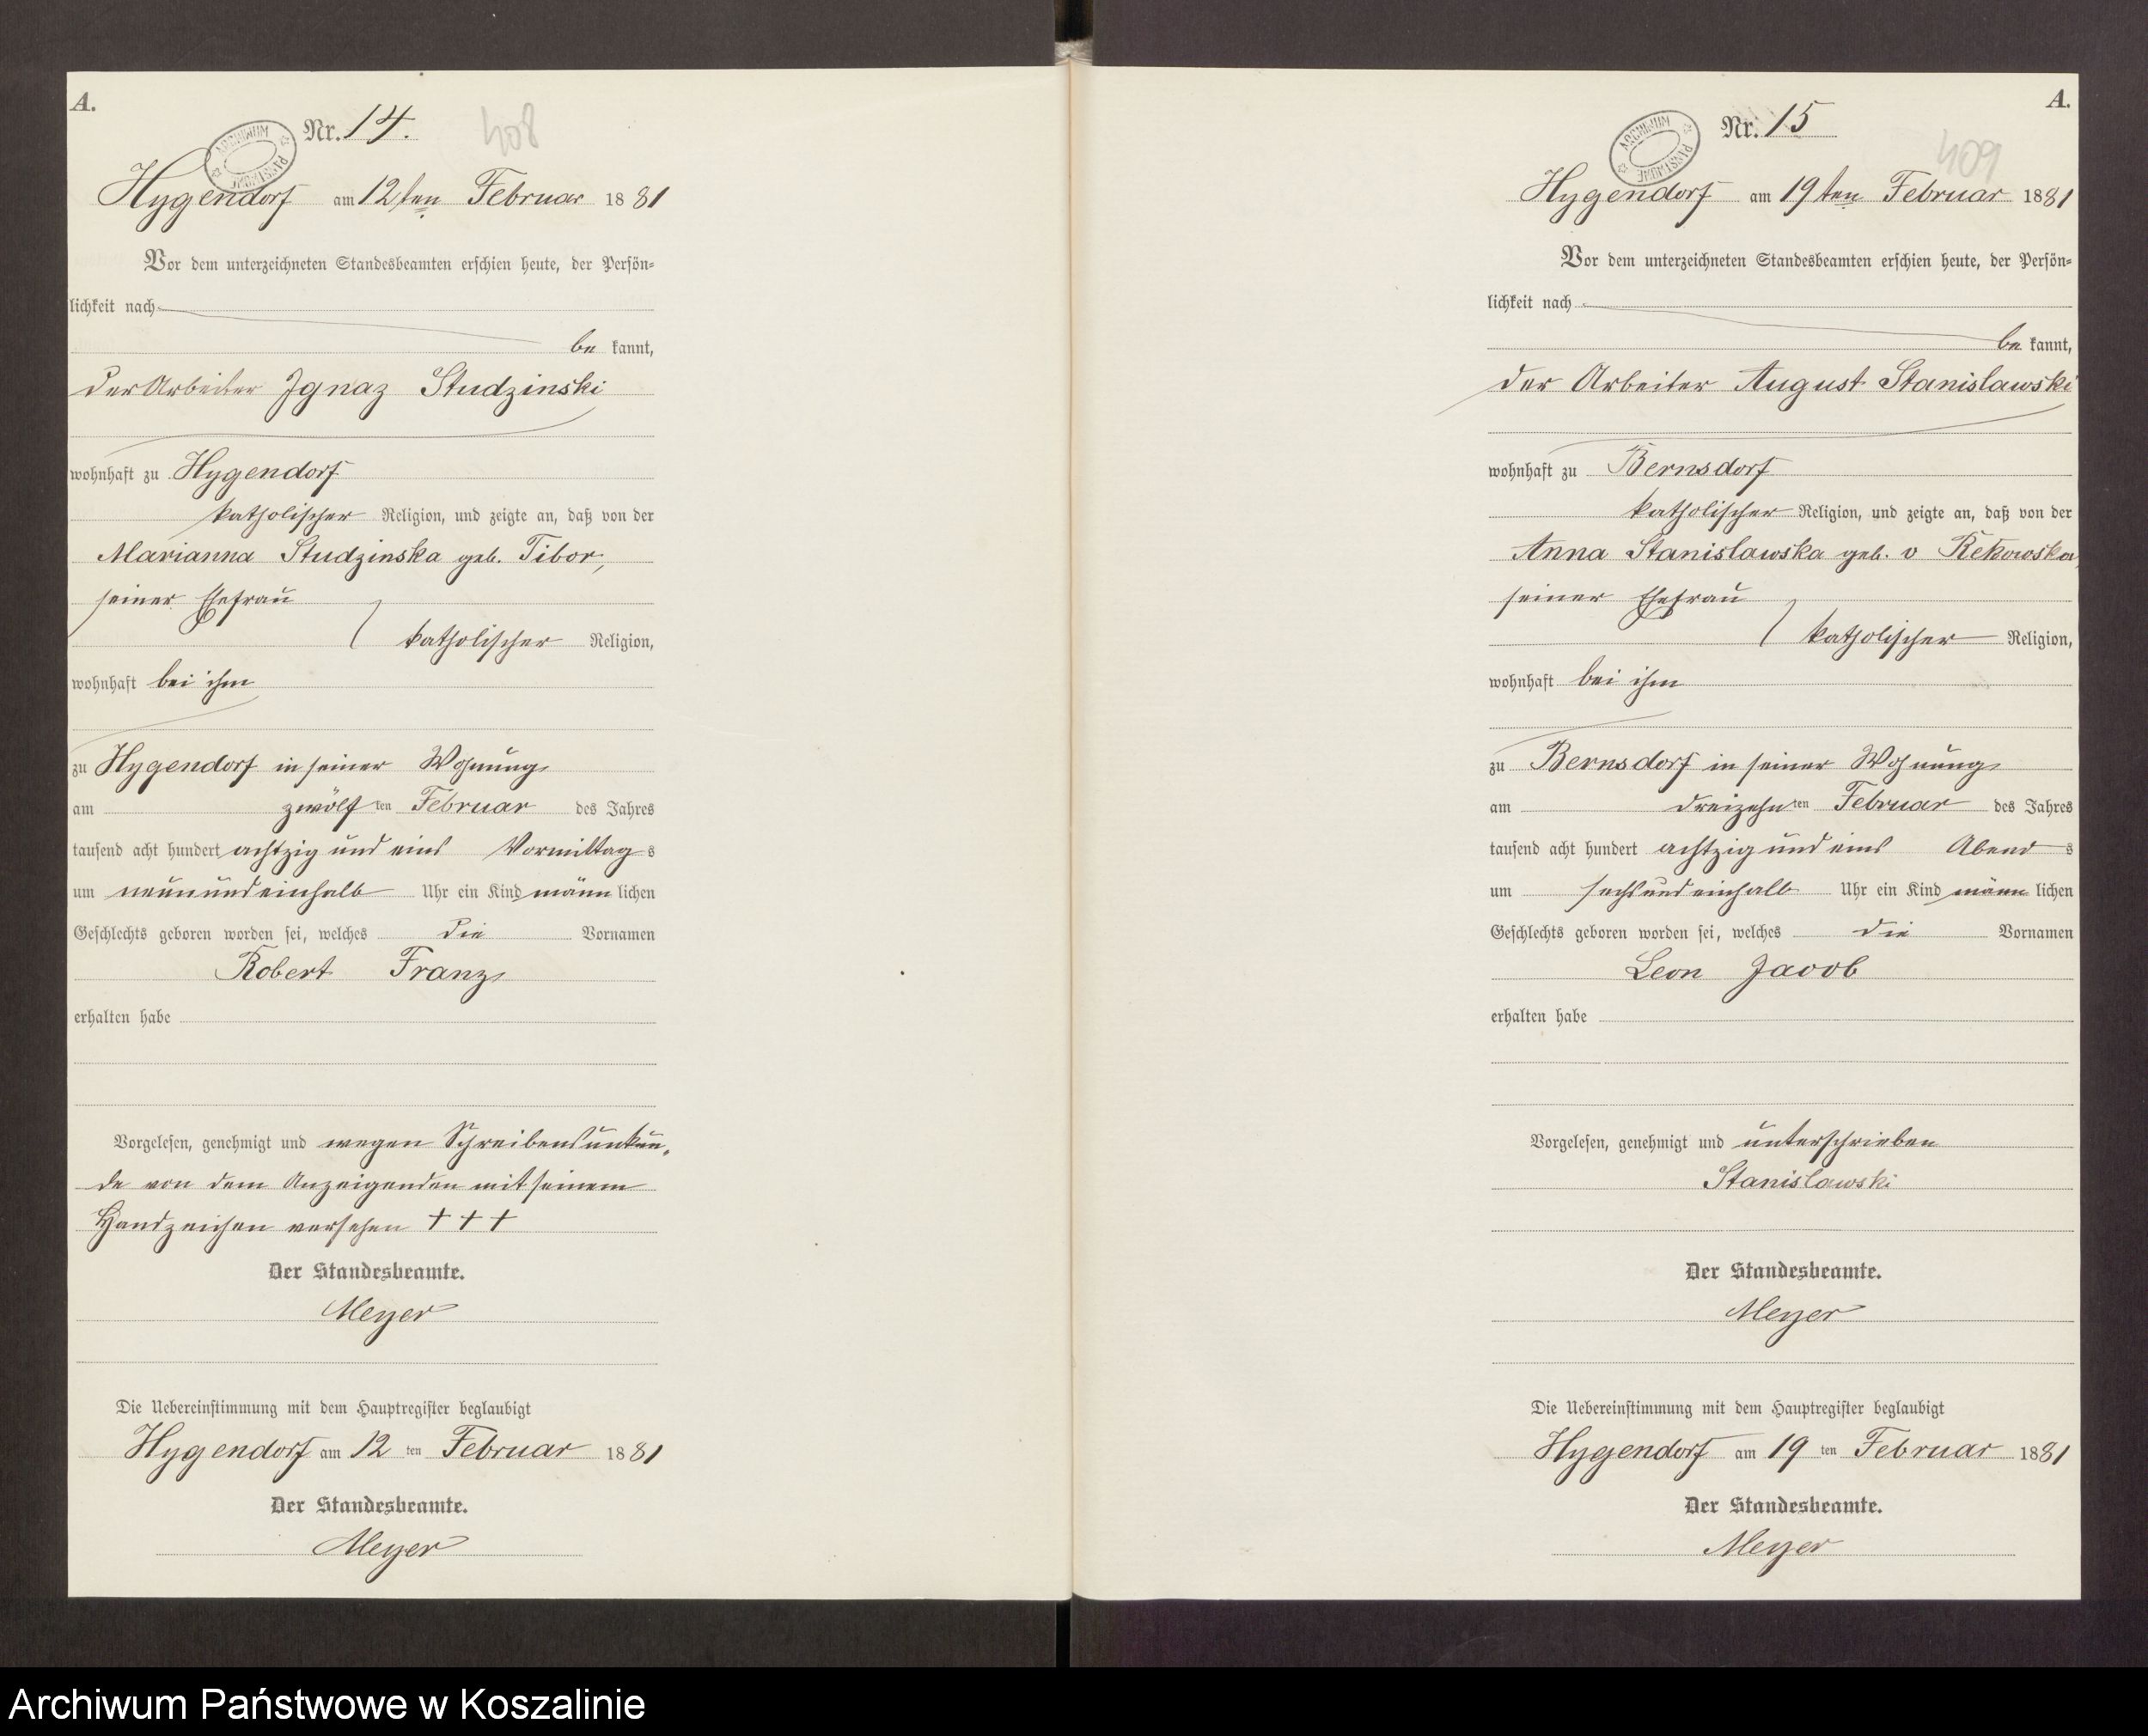 A.
Nr. 14.
408
ARCHIWUM PAŃSTWOWE
Hygendorf am 12ten Februar 1881
Vor dem unterzeichneten Standesbeamten erschien heute, der Persön-
lichkeit nach
be kannt,
der Arbeiter Ignaz Studzinski
wohnhaft zu Hygendorf
katholischer Religion, und zeigte an, daß von der
Marianna Studzinska geb. Tibor,
seiner Ehefrau
katholischer Religion,
wohnhaft bei ihm
zu Hygendorf in seiner Wohnung
am zwölf ten Februar des Jahres
tausend acht hundert achtzig und eins Vormittag s
um neun und einhalb Uhr ein Kind männ lichen
Geschlechts geboren worden sei, welches die Vornamen
Robert Franz
erhalten habe
Vorgelesen, genehmigt und wegen Schreibensunkun-
de von dem Anzeigenden mit seinem
Handzeichen versehen + + +
Der Standesbeamte.
Meyer
Die Uebereinstimmung mit dem Hauptregister beglaubigt
Hygendorf am 12 ten Februar 1881
Der Standesbeamte.
Meyer
A.
Nr. 15
409
ARCHIWUM PAŃSTWOWE
Hygendorf am 19ten Februar 1881
Vor dem unterzeichneten Standesbeamten erschien heute, der Persön-
lichkeit nach
be kannt,
der Arbeiter August Stanislawski
wohnhaft zu Bernsdorf
katholischer Religion, und zeigte an, daß von der
Anna Stanislawska geb. v Rekowska,
seiner Ehefrau
katholischer Religion,
wohnhaft bei ihm
zu Bernsdorf in seiner Wohnung
am dreizehn ten Februar des Jahres
tausend acht hundert achtzig und eins Abend s
um sechs und einhalb Uhr ein Kind männ lichen
Geschlechts geboren worden sei, welches die Vornamen
Leon Jacob
erhalten habe
Vorgelesen, genehmigt und unterschrieben
Stanislawski
Der Standesbeamte.
Meyer
Die Uebereinstimmung mit dem Hauptregister beglaubigt
Hygendorf am 19 ten Februar 1881
Der Standesbeamte.
Meyer
Archiwum Państwowe w Koszalinie